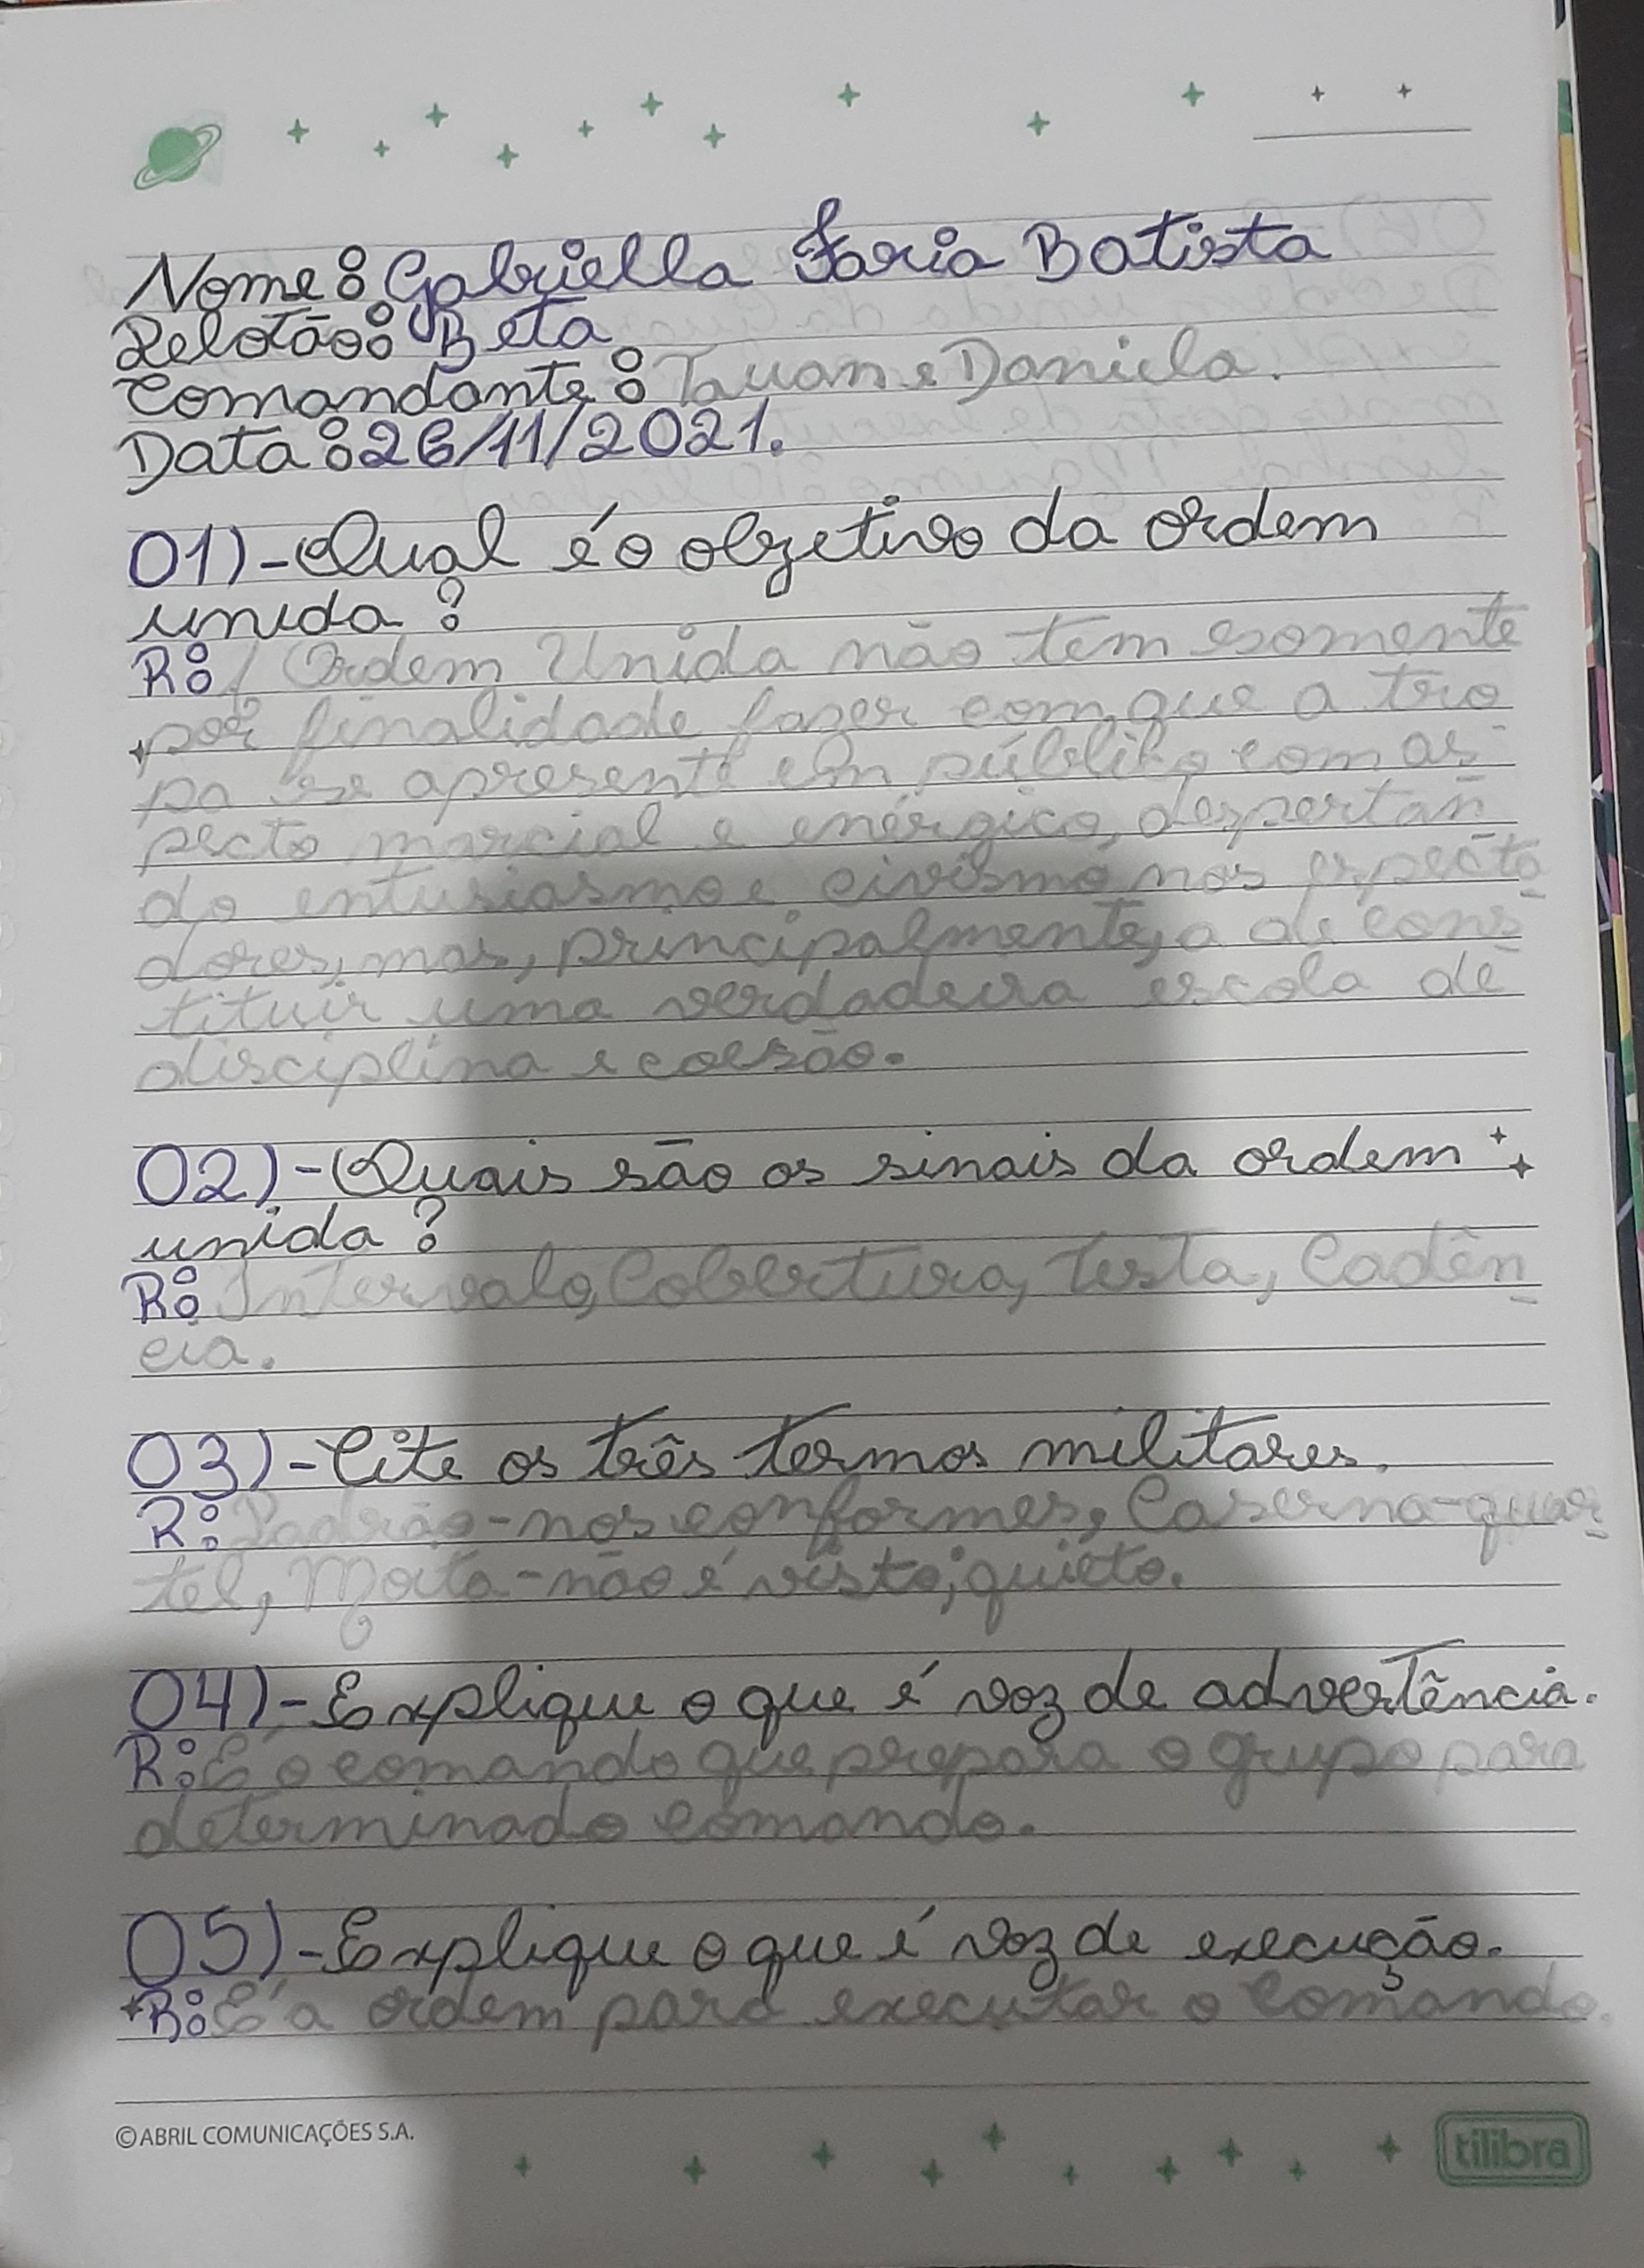 Nome: Gabriella Faria Batista
Pelotão: Beta
Comandante: Tauan e Daniela.
Data: 26/11/2021.
01)-Qual é o objetivo da ordem
unida?
R: Ordem Unida não tem somente
por finalidade fazer com que a tro
pa se apresente em público com as-
pecto marcial e enérgico, despertan
do entusiasmo e civismo nos especta
dores, mas, principalmente, a de cons
tituir uma verdadeira escola de
disciplina e coesão.
02)-Quais são os sinais da ordem
unida?
R: Intervalo, Cobertura, Testa, Cadên
cia.
03)-Cite os três termos militares.
R: Padrão-nos conformes, Caserna-quar
tel, Moita-não é visto; quieto.
04)-Explique o que é voz de advertência.
R: É o comando que prepara o grupo para
determinado comando.
05)-Explique o que é voz de execução.
R: É a ordem para executar o comando.
©ABRIL COMUNICAÇÕES S.A.
tilibra